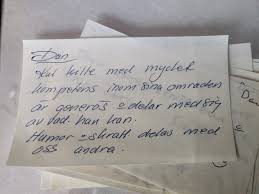 Dan
Kul kille med mycket
kompetens inom sina områden
är generös o delar med sig
av vad han kan.
Humor o skratt delas med
oss andra.
Da